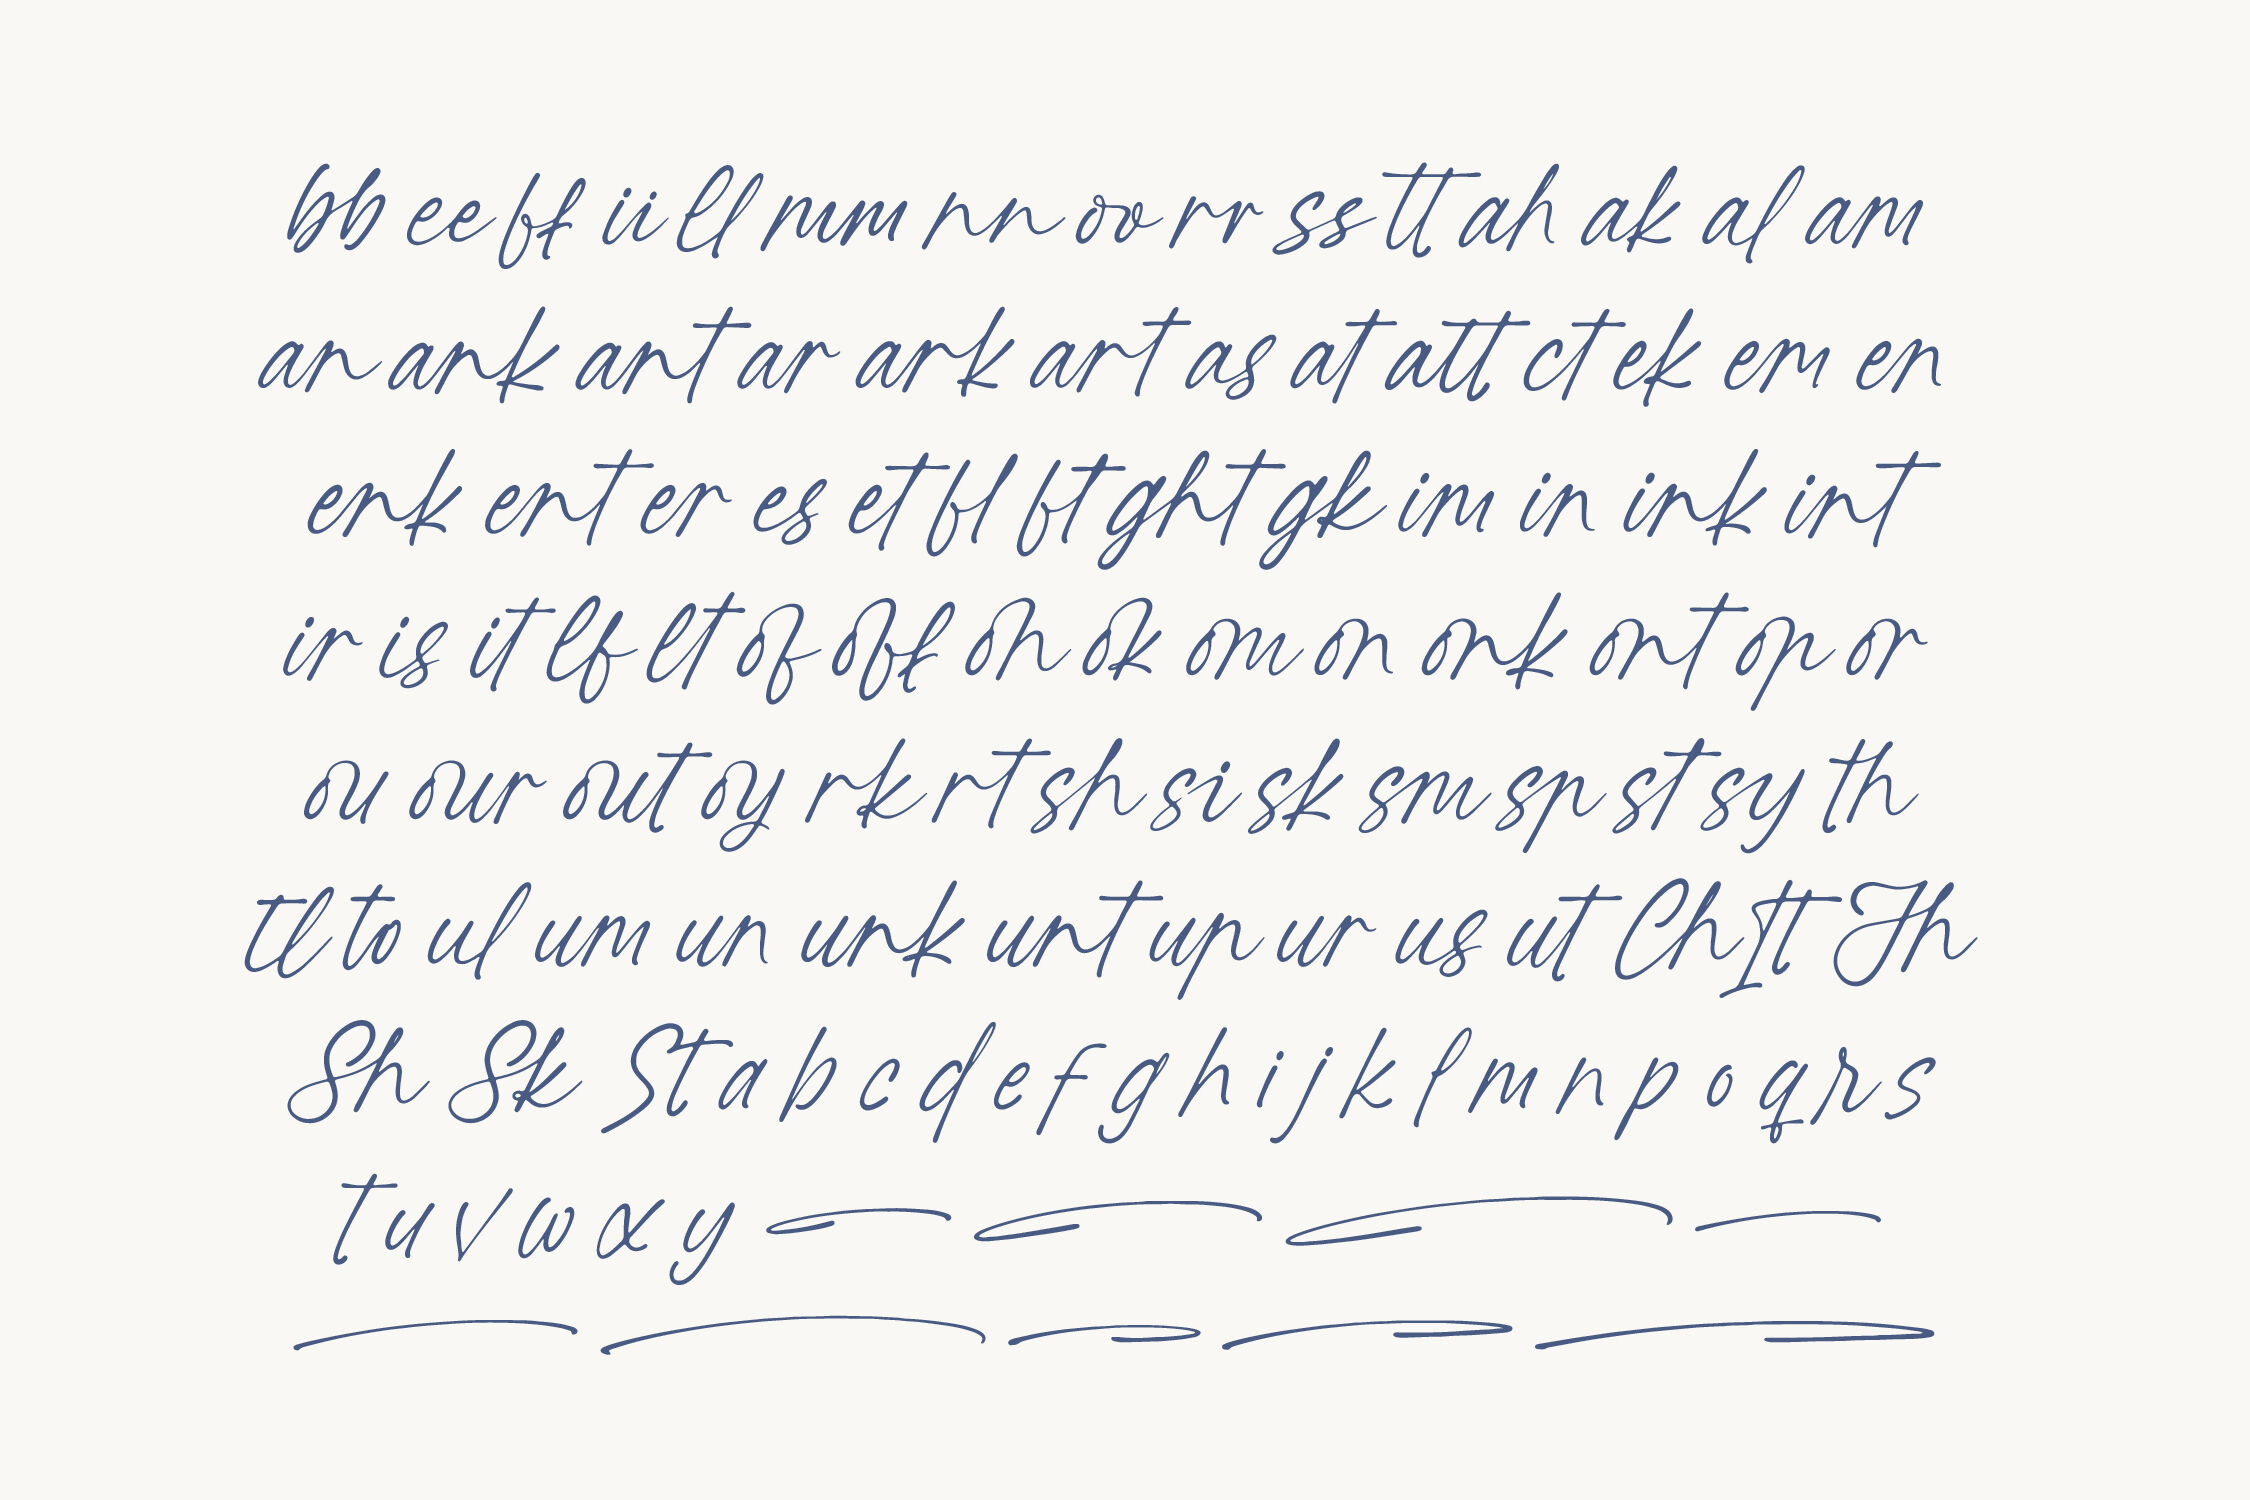 bb ee ff ii ll mm nn oo rr ss tt ah ak al am
an ank ant ar ark art as at att ct ek em en
enk ent er es et fl ft ght gk im in ink int
ir is it lf lt of off oh ok om on onk ont op or
ou our out oy rk rt sh si sk sm sp st sy th
tl to ul um un unk unt up ur us ut Ch It Th
Sh Sk St a b c d e f g h i j k l m n p o q r s
t u v w x y